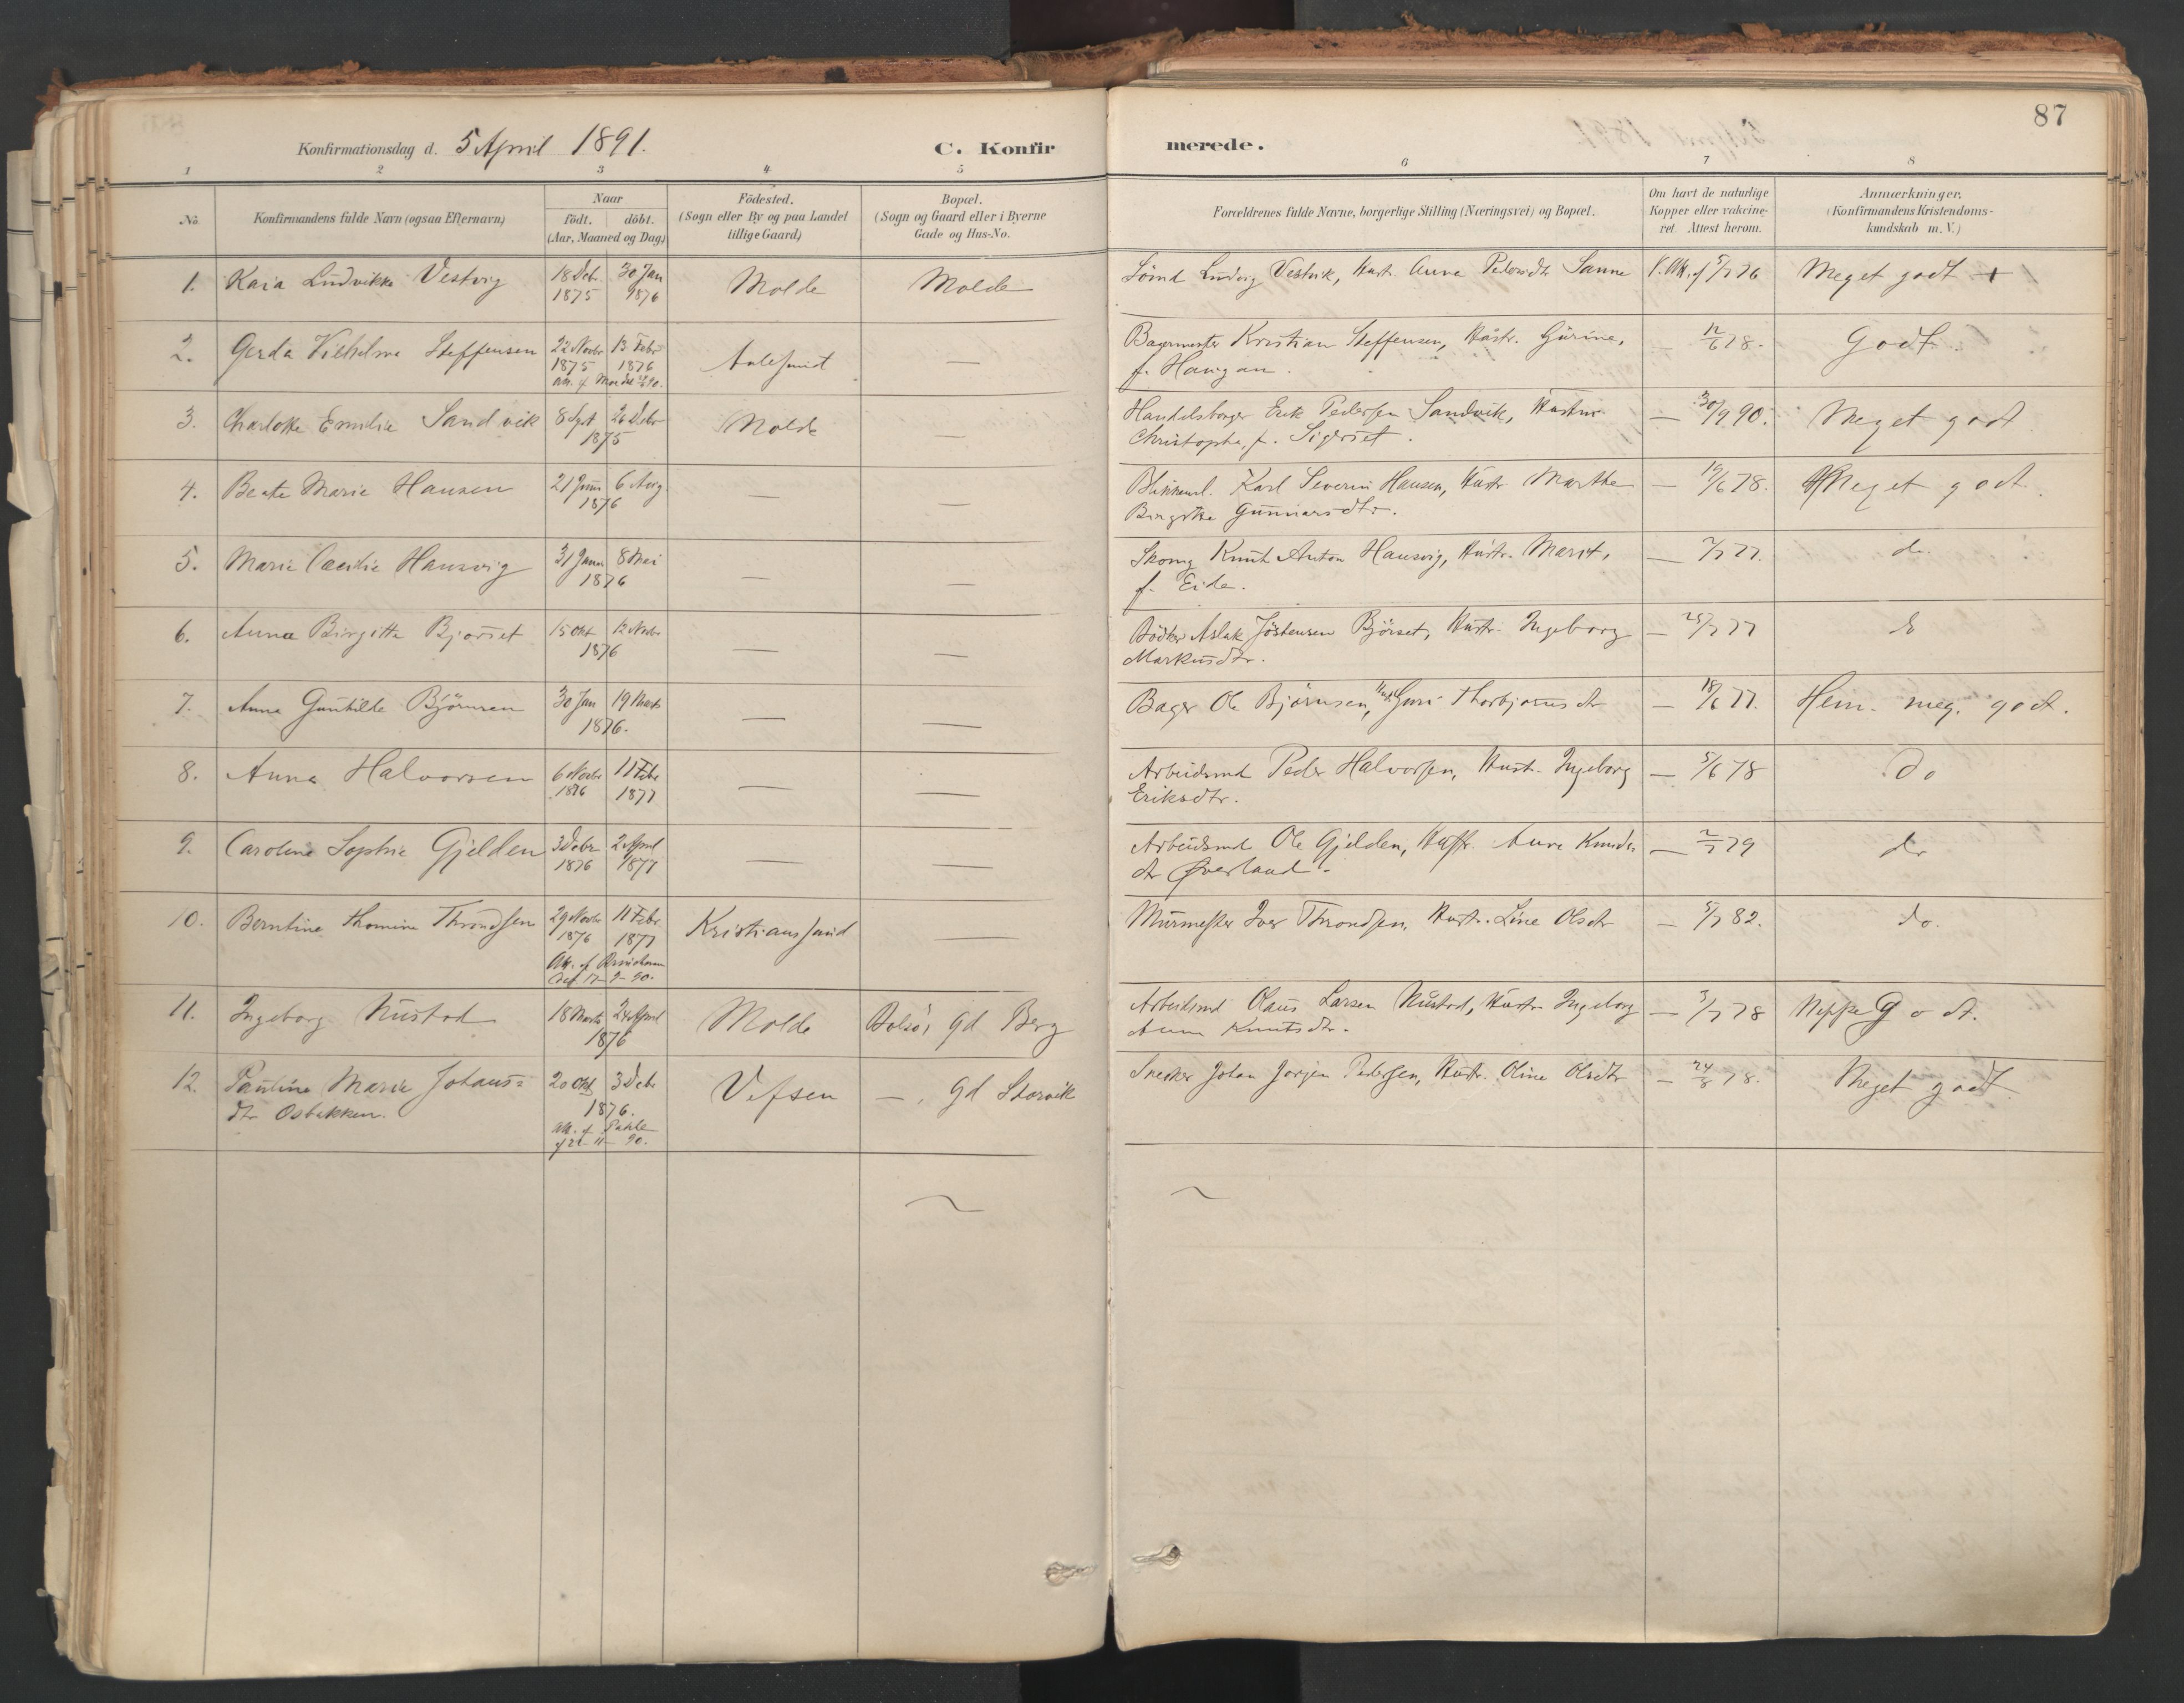 87
Konfirmationsdag d. 5 April 1891.
C. Konfirmerede.
1 2 3 4 5 6 7 8
No.
Konfirmandens fulde Navn (ogsaa Efternavn)
Naar
födt. döbt.
(Aar, Maaned og Dag)
Födested.
(Sogn eller By og paa Landet
tillige Gaard)
Bopæl.
(Sogn og Gaard eller i Byerne
Gade og Hus-No.
Forældrenes fulde Navne, borgerlige Stilling (Næringsvei) og Bopæl.
Om havt de naturlige
Kopper eller vakcine-
ret. Attest herom.
Anmærkninger.
(Konfirmandens Kristendoms-
kundskab m. V.)
1. Kaia Ludvikke Vestvig 18 Debr 1875 30 Jan 1876 Molde Molde Sömd Ludvig Vestvik, Hustr. Anne Pedersdtr Sanne V. Att. f 5/7 76 Meget godt +
2. Gerda Vilhelmine Steffensen 22 Novbr 1875 13 Febr 1876 Aalesund — Bagermester Kristian Steffensen, Hustr. Gurine, — 12/6 78. Godt.
f. Haugan.
3. Charlotte Emilie Sandvik 8 Sept 26 Debr 1875 Molde — Handelsborger Erik Pedersen Sandvik, Hustr. — 30/9 90. Meget godt
Christophe, f.
4. Beate Marie Hansen 21 Juni 6 Aug 1876 — — Karl Severin Hansen, Hustr Marthe — 19/6 78. Meget godt.
Birgitte Gunnarsdtr.
5. Marie Cecilie Hansvig 31 Janu 8 Mai 1876 — — Skomg Knut Anton Hansvig, Hustr. Marit, — 7/7 77. do
f. Eide.
6. Anna Birgitte Bjørset 15 Okt 12 Novbr 1876 — — Bödker Aslak Jöstensen Björset, Hustr. Ingeborg — 25/7 77 do
Markusdtr.
7. Anna Gunhilde Björnsen 30 Jan 19 Marts 1876. — — Bager Ole Bjørnsen, Hust. Guri Thorbjørnsdtr — 18/6 77. Hem. meg. godt.
8. Anna Halvorsen 6 Novbr 1876 11 Febr 1877 — — Arbeidsmd Peder Halvorsen, Hust. Ingeborg — 5/6 78 Do
Eriksdtr.
9. Caroline Sophie Gjelden 3 Debr 1876 2 April 1877 — — Arbeidsmd Ole Gjelden, Hustr. Anne Knuds- — 2/7 79 do
dtr Øverland.
10. Berntine Thomine Throndsen 29 Novbr 1876 11 Febr 1877 Kristianssund — Murmester Iver Throndsen, Hustr. Line Olsdtr — 5/7 82. do.
11. Ingeborg Nustad 18 Marts 24 April 1876 Molde Bolsö, Gd Berg Arbeidsmd Olaus Larsen Nustad, Hustr. Ingeborg — 3/7 78 Neppe Godt.
Anne Knutsdtr.
12. Pauline Marie Johans- 20 Okt 3 Debr 1876. Vefsen —, Gd Storvik Snedker Johan Jørgen Pedersen, Hustr. Oline Olsdtr — 24/8 78. Meget godt
dtr Osbakken.